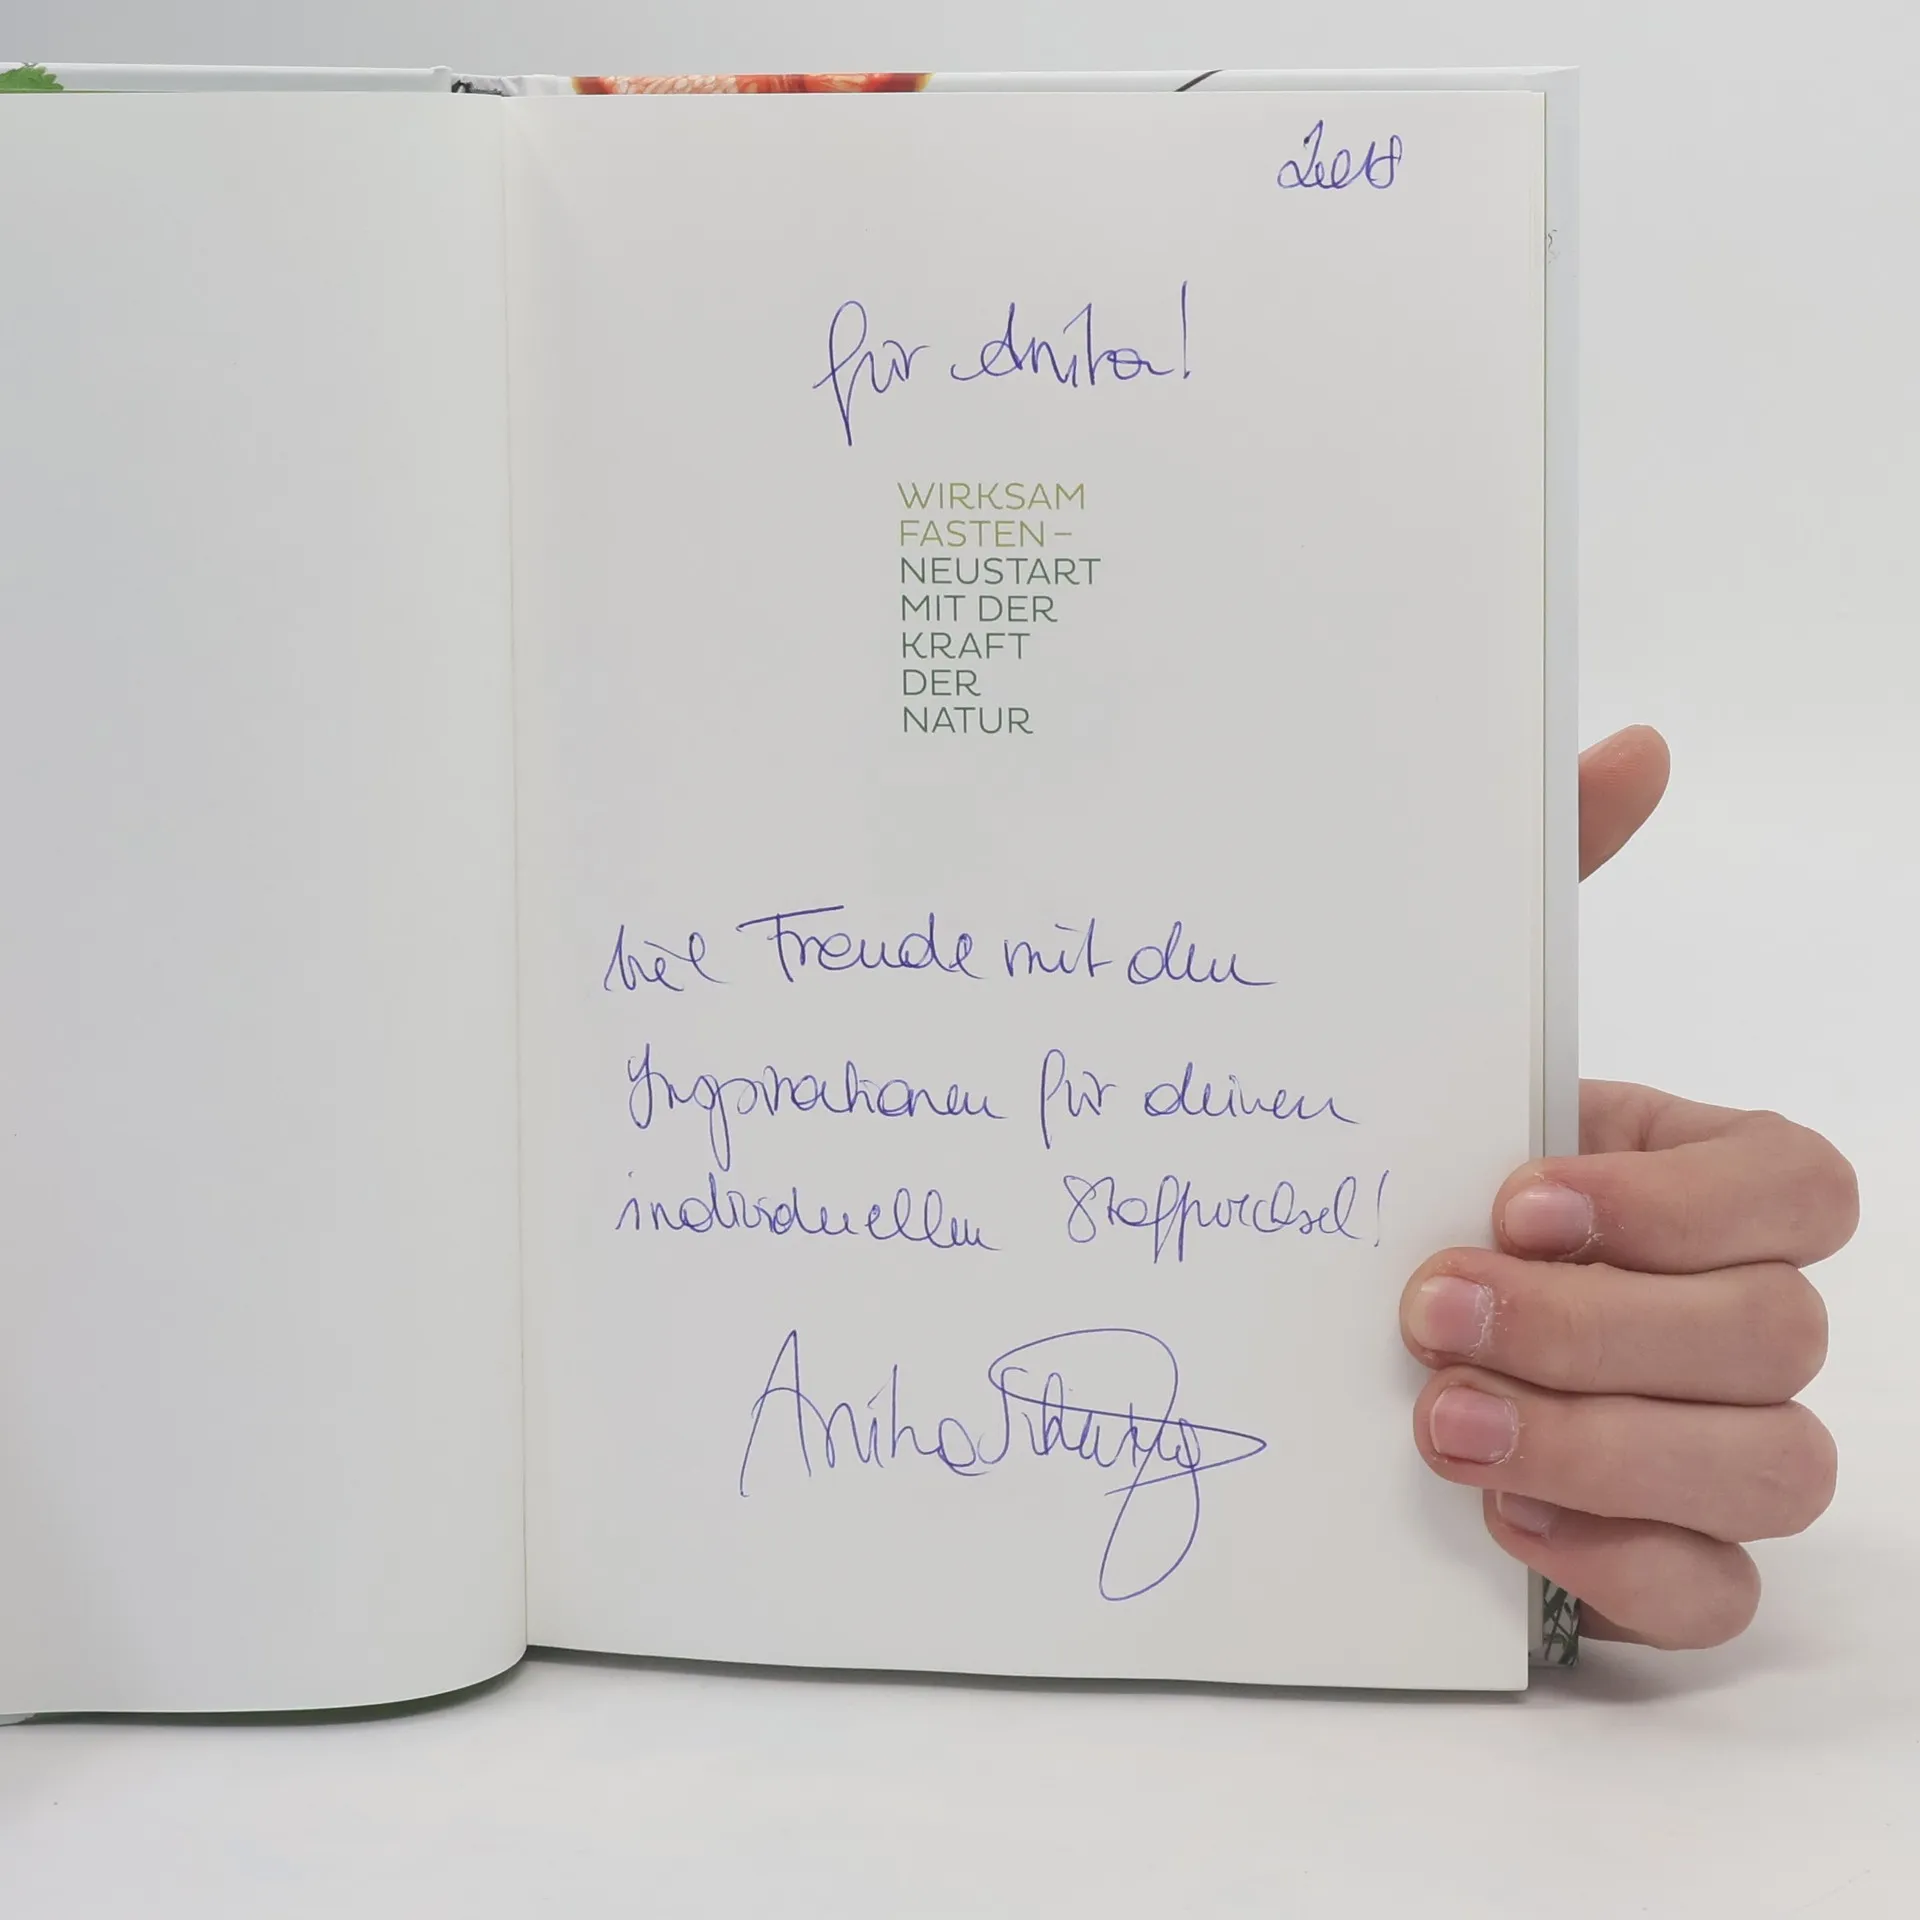 2018
für Anita!
WIRKSAM
FASTEN –
NEUSTART
MIT DER
KRAFT
DER
NATUR
viel Freude mit den
Inspirationen für deinen
individuellen Stoffwechsel!
Anita